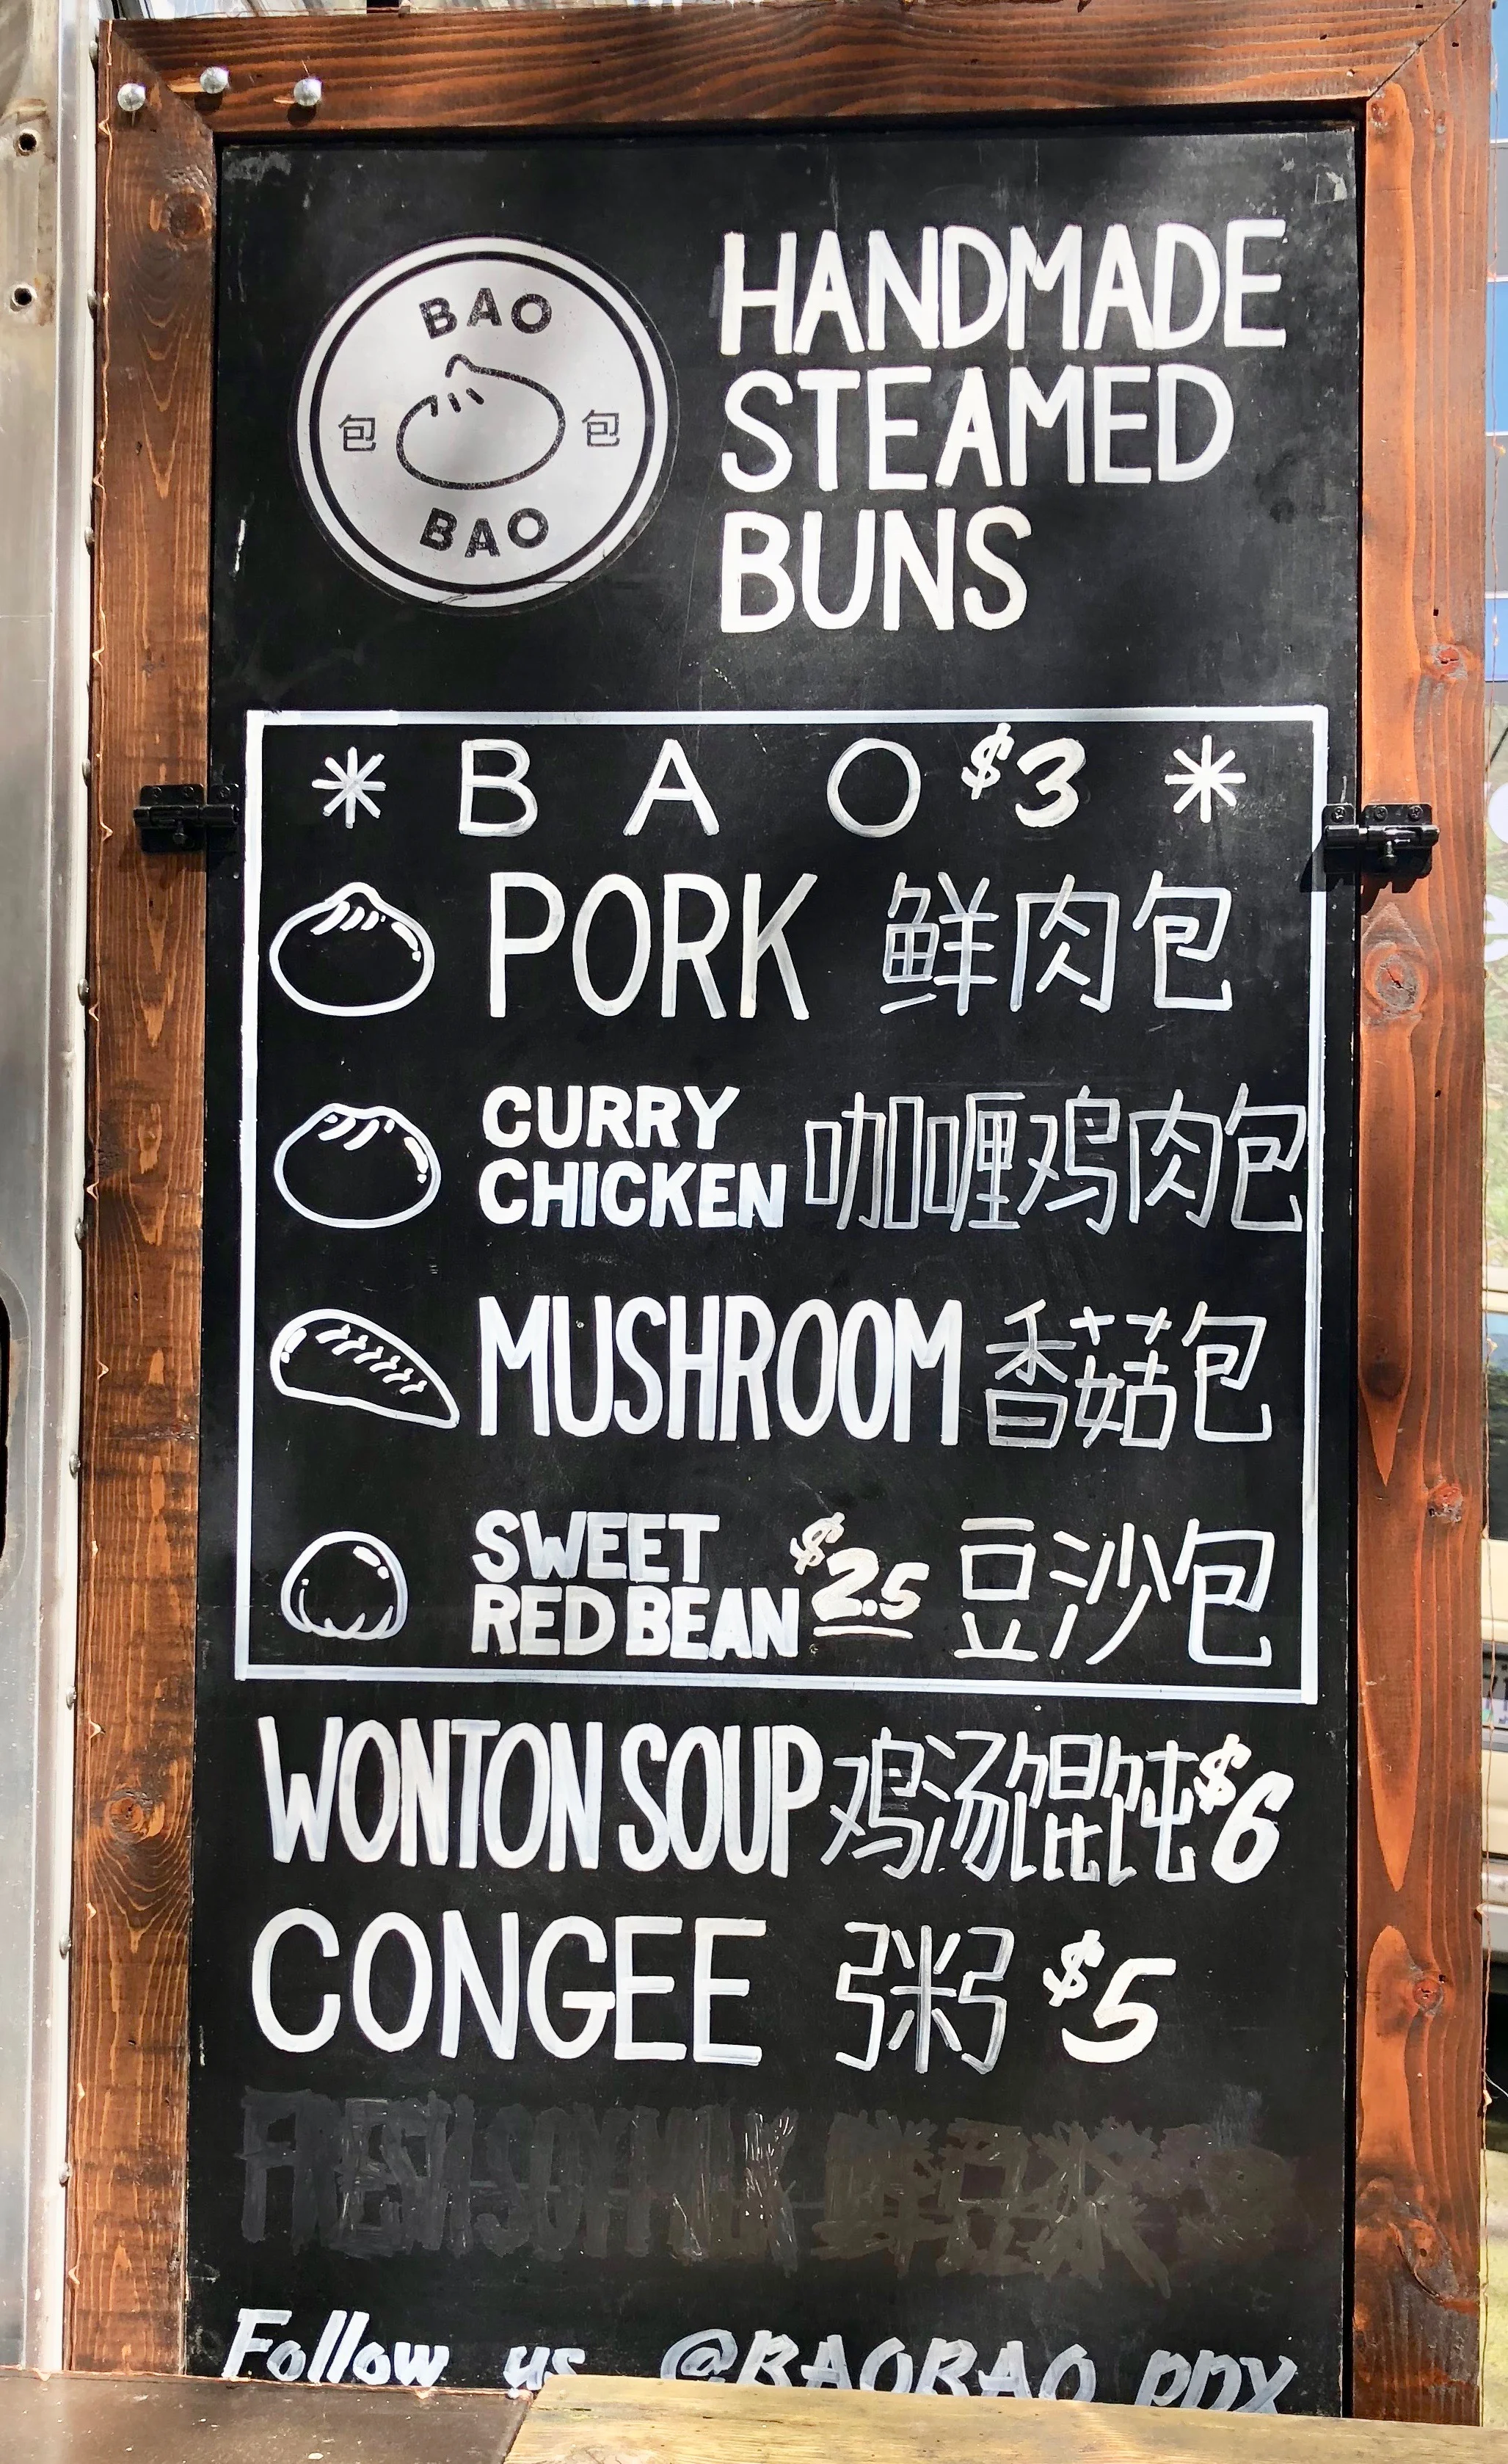 BAO
包 包
BAO
HANDMADE
STEAMED
BUNS
BAO $3
PORK 鲜肉包
CURRY
CHICKEN 咖喱鸡肉包
MUSHROOM 香菇包
SWEET
RED BEAN $2.5 豆沙包
WONTON SOUP 鸡汤馄饨 $6
CONGEE 粥 $5
FRESH SOYMILK 鲜豆浆
Follow us @BAOBAO PDX